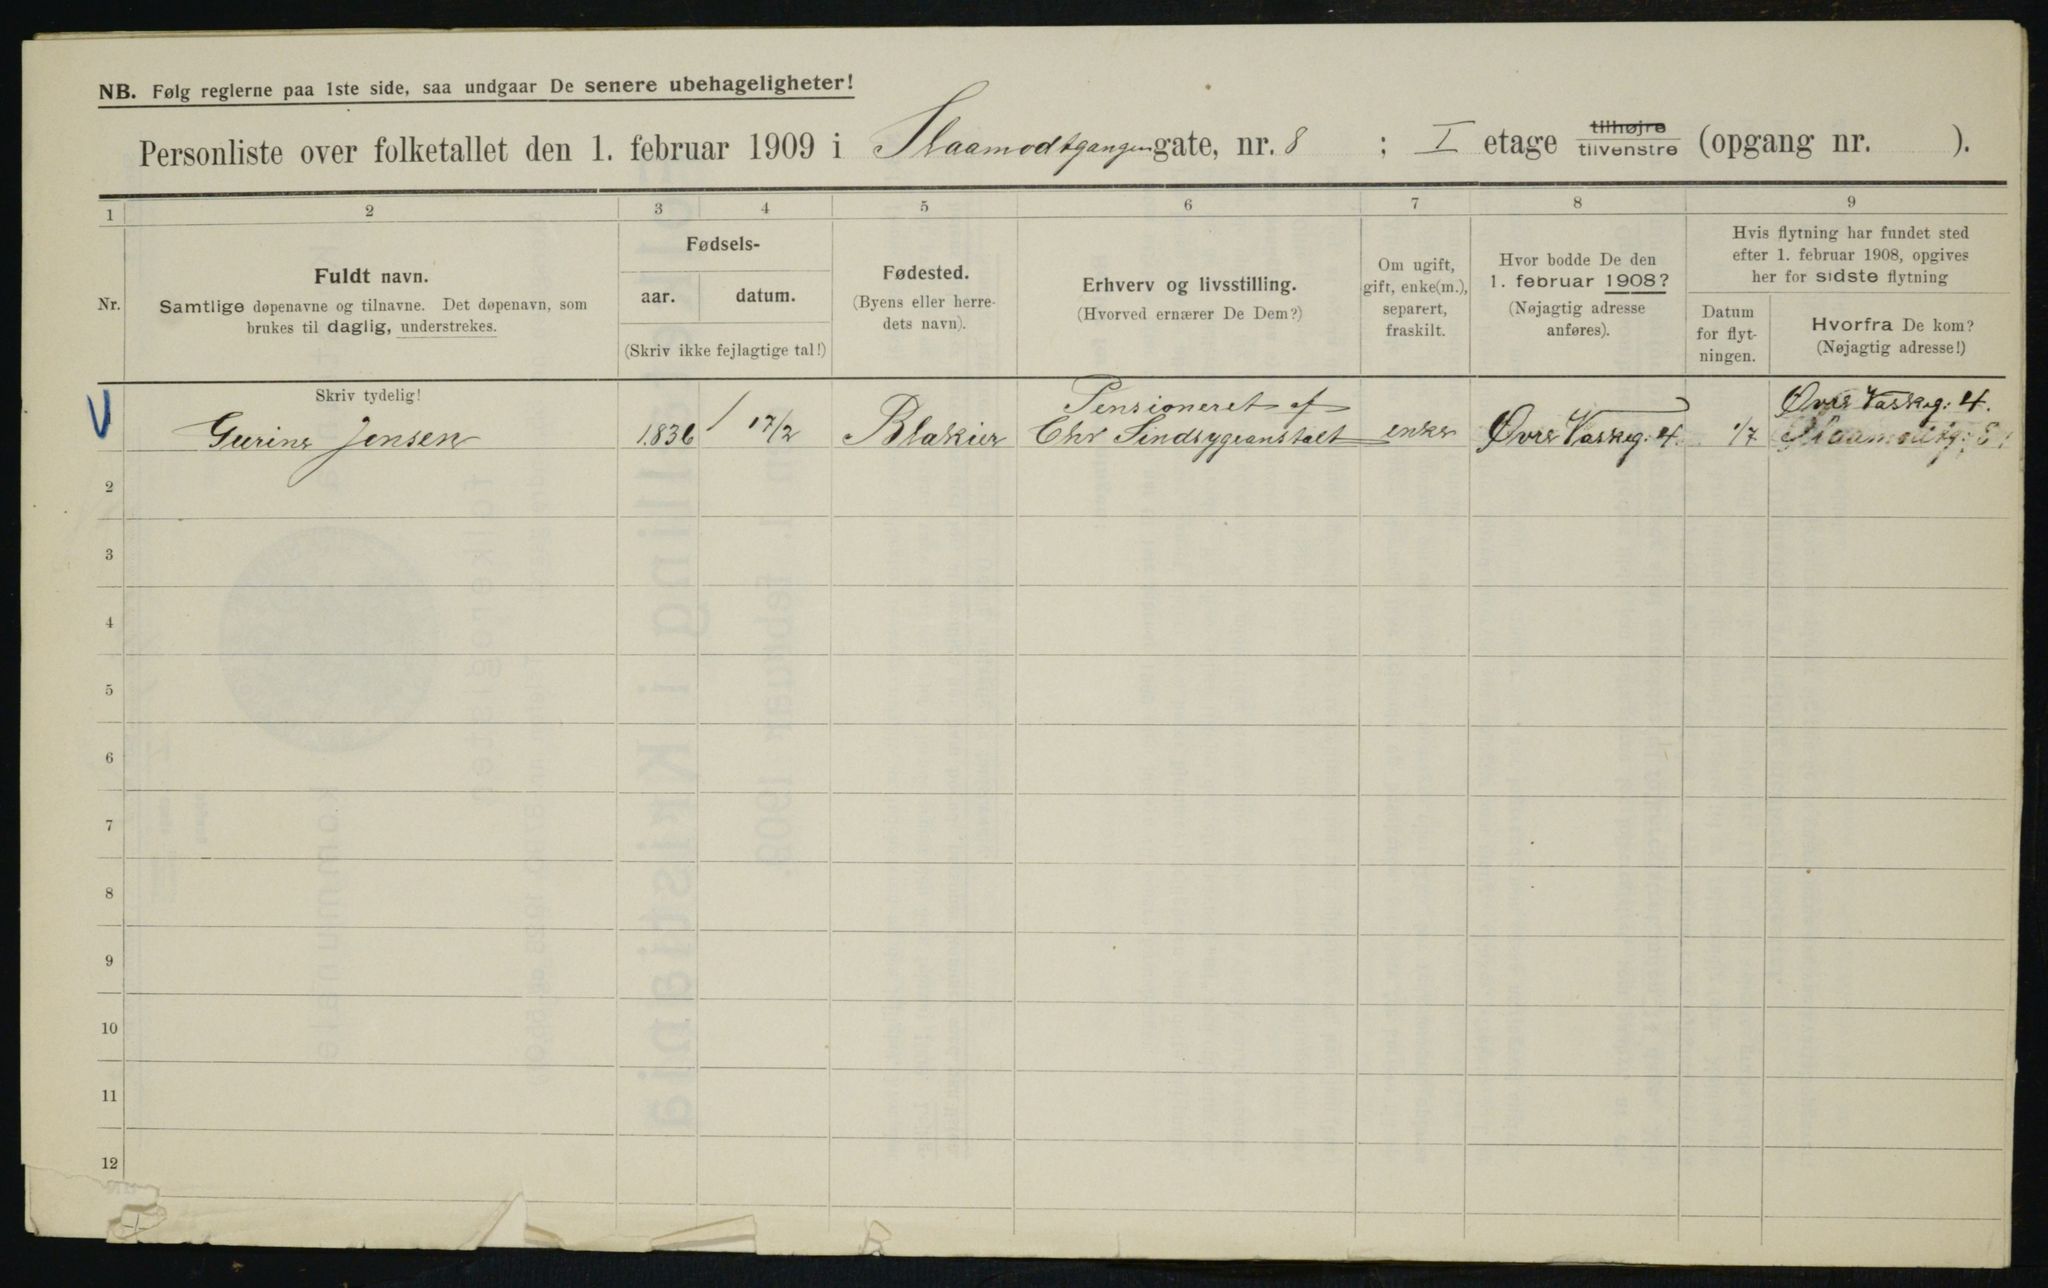 NB. Følg reglerne paa 1ste side, saa undgaar De senere ubehageligheter!
Personliste over folketallet den 1. februar 1909 i Slaamodtgangen gate, nr. 8 ; I etage tilhøjre tilvenstre (opgang nr. ).
1 2 3 4 5 6 7 8 9
Nr.
Fuldt navn.
Samtlige døpenavne og tilnavne. Det døpenavn, som
brukes til daglig, understrekes.
Fødsels-
aar. datum.
(Skriv ikke fejlagtige tal!)
Fødested.
(Byens eller herre-
dets navn).
Erhverv og livsstilling.
(Hvorved ernærer De Dem?)
Om ugift,
gift, enke(m.),
separert,
fraskilt.
Hvor bodde De den
1. februar 1908?
(Nøjagtig adresse
anføres).
Hvis flytning har fundet sted
efter 1. februar 1908, opgives
her for sidste flytning
Datum
for flyt-
ningen.
Hvorfra De kom?
(Nøjagtig adresse!)
Skriv tydelig!
Pensioneret af
Øvre Vaskeg: 4.
Gurine Jensen 1836 17/2 Blakier Chr Sindsygeanstalt enke Øvre Vaskeg: 4. 1/7
2
3
4
5
6
7
8
9
10
11
12